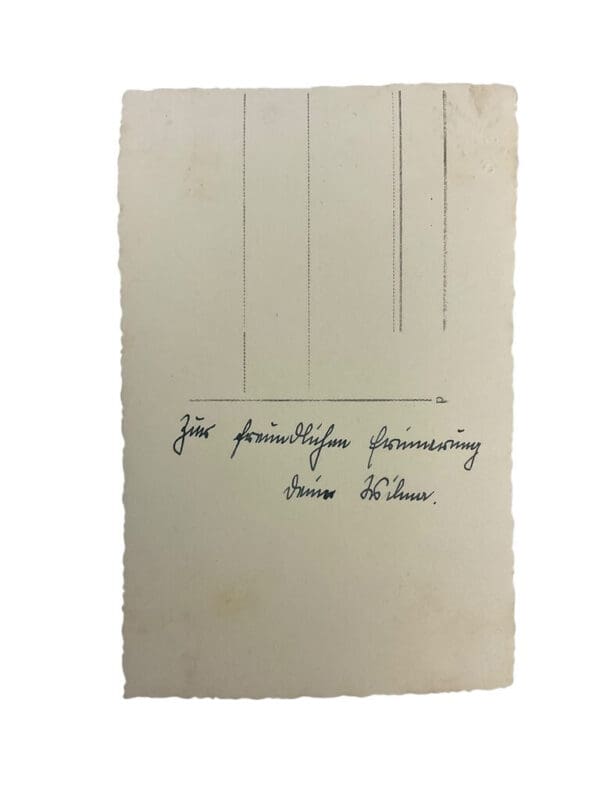 Zur freundlichen Erinnerung
deine Wilma.